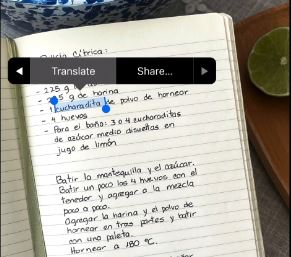 Cítrica:
Translate Share...
- 225 g
g de harina
- 1 cucharadita de polvo de hornear
- 4 huevos
- Para el baño: 3 o 4 cucharaditas
de azúcar medio disueltas en
jugo de limón
Batir la mantequilla y el azúcar.
Batir un poco los 4 huevos con el
tenedor y agregar a la mezcla
poco a poco.
Agregar la harina y el polvo de
hornear en tres partes y batir
con una paleta.
Hornear a 180 °C.